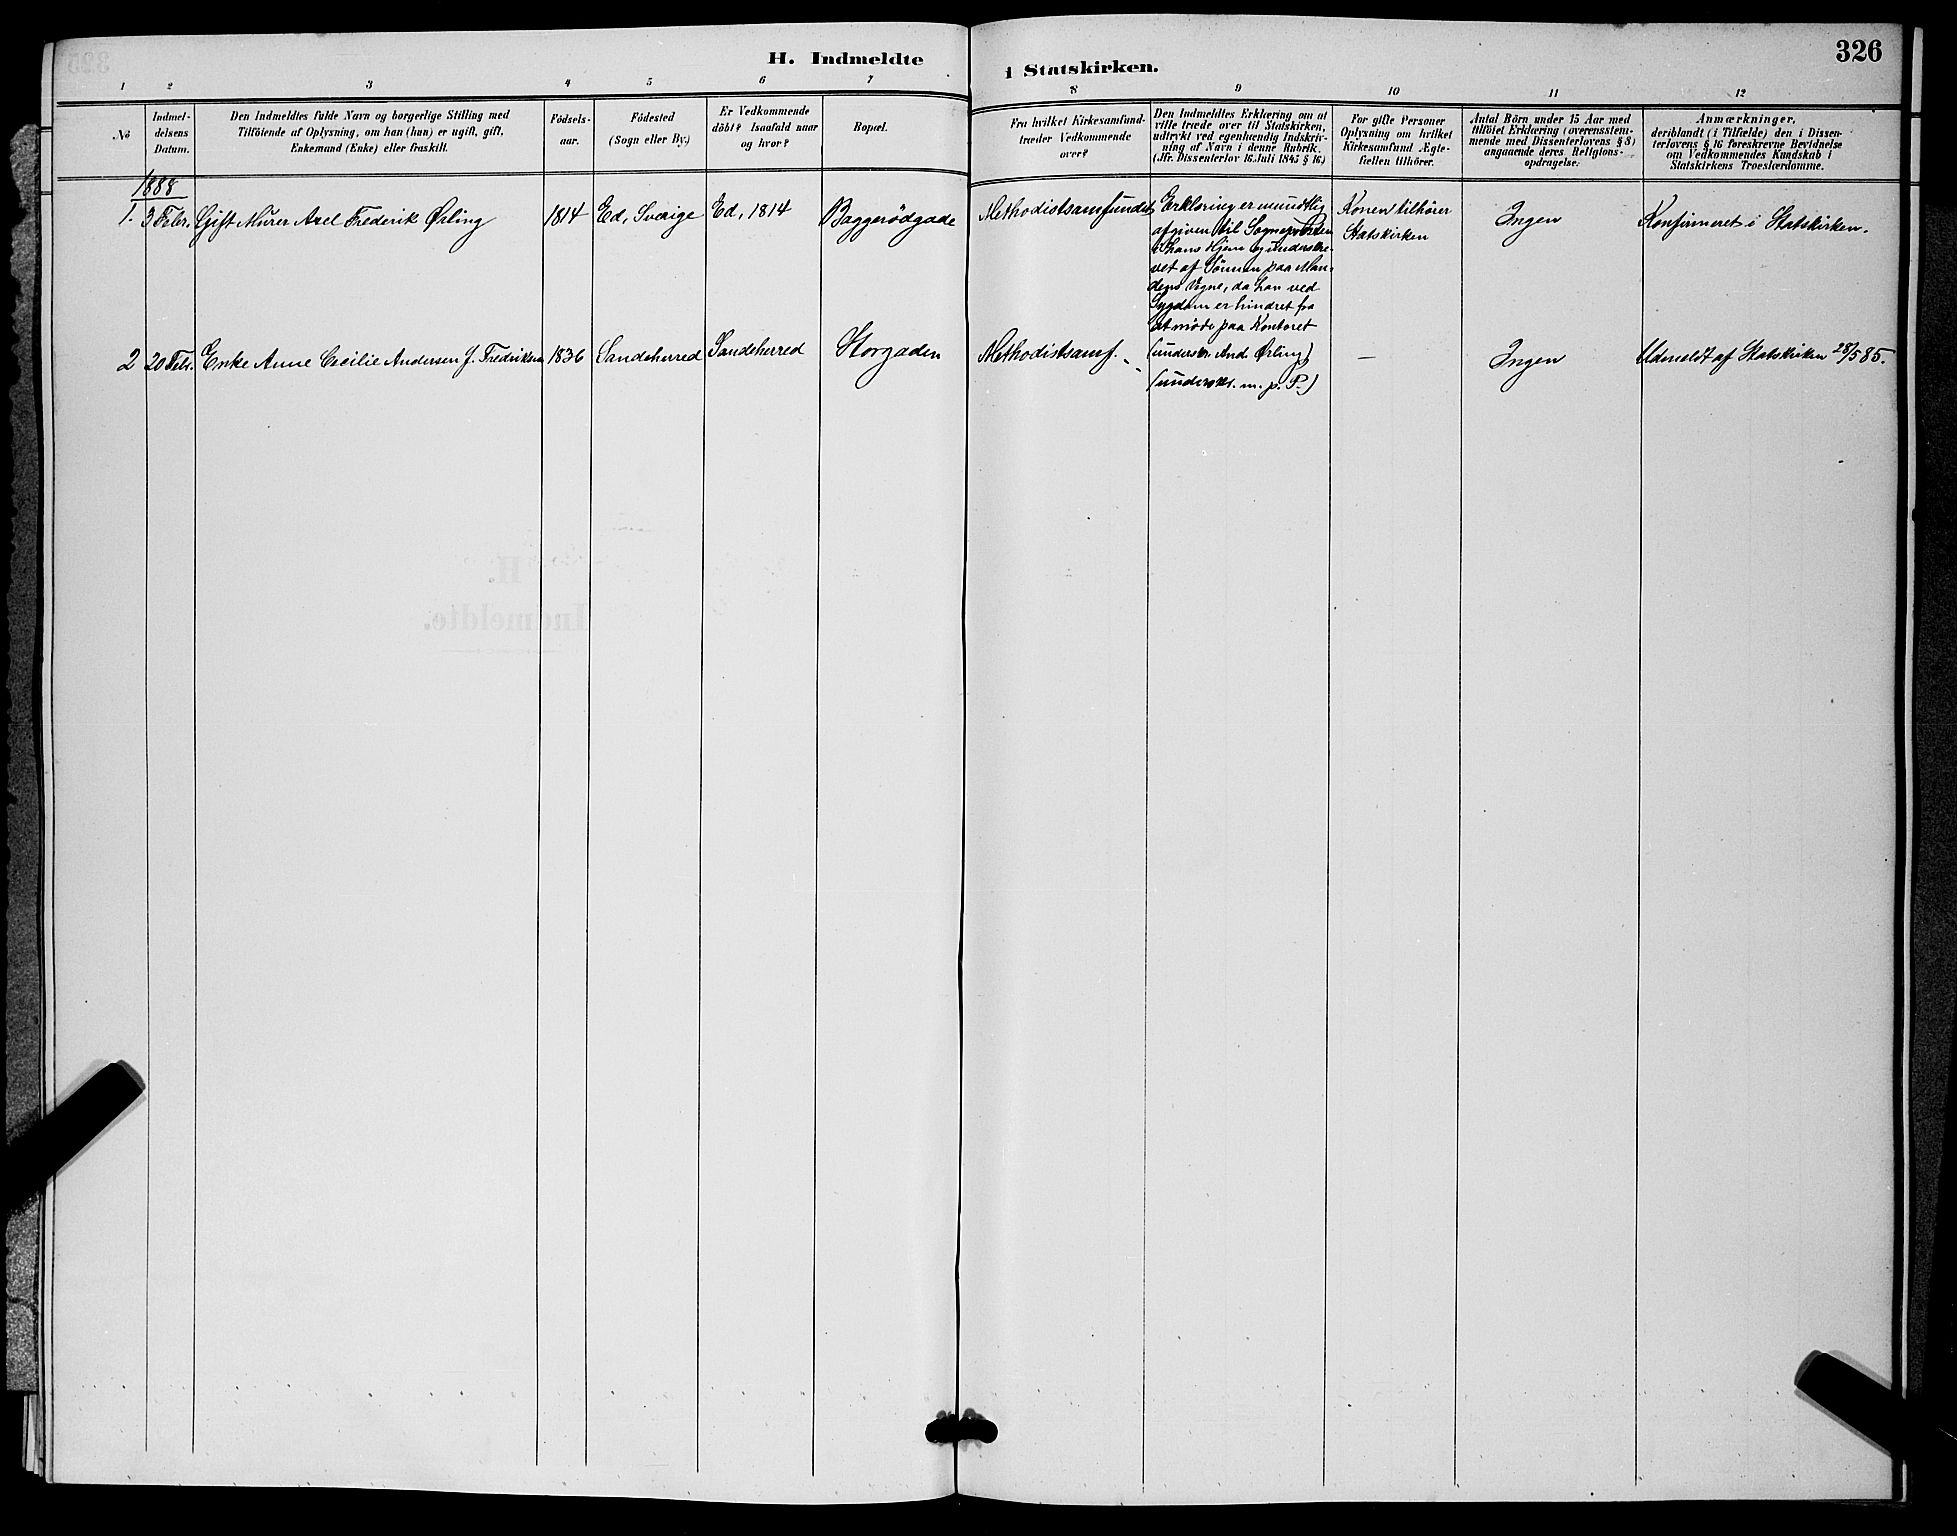 H. Indmeldte i Statskirken.
326
1 2 3 4 5 6 7 8 9 10 11 12
No
Indmel-
delsens
Datum.
Den Indmeldtes fulde Navn og borgerlige Stilling med
Tilföiende af Oplysning, om han (hun) er ugift, gift,
Enkemand (Enke) eller fraskilt.
Födsels-
aar.
Födested
(Sogn eller By.)
Er Vedkommende
döbt? Isaafald naar
og hvor?
Bopæl.
Fra hvilket Kirkesamfund-
træder Vedkommende
over?
Den Indmeldtes Erklæring om at
ville træde over til Statskirken,
udtrykt ved egenhændig Indskriv-
ning af Navn i denne Rubrik.
(Jfr. Dissenterlov 16. Juli 1845 § 16.)
For gifte Personer
Oplysning om hvilket
Kirkesamfund Ægte-
fællen tilhörer.
Antal Börn under 15 Aar med
tilföiet Erklæring (overensstem-
mende med Dissenterlovens § 8)
angaaende deres Religions-
opdragelse.
Anmærkninger,
deriblandt (i Tilfælde) den i Dissen-
terlovens § 16 foreskrevne Bevidnelse
om Vedkommendes Kundskab i
Statskirkens Troeslærdomme.
1888
1.
3 Febr.
Gift Murer Axel Frederik Örling
1814
Ed, Sverige
Ed, 1814
Baggerödgade
Methodistsamfundet
Erklæring er mundtlig
afgiven til Sognepræsten
i hans Hjem og underskre-
vet af Sönnen paa Man-
dens Vegne, da han ved
Sygdom er hindret fra
at möde paa Kontoret
(underskr. And. Örling)
Konen tilhörer
Statskirken
Ingen
Konfirmeret i Statskirken.
2
20 Febr.
Enke Anne Cecilie Andersen f. Fredriksen
1836
Sandeherred
Sandeherred
Storgaden
Methodistsamf.
(underskr. m. p. P.)
—
Ingen
Udmeldt af Statskirken 28/5 85.